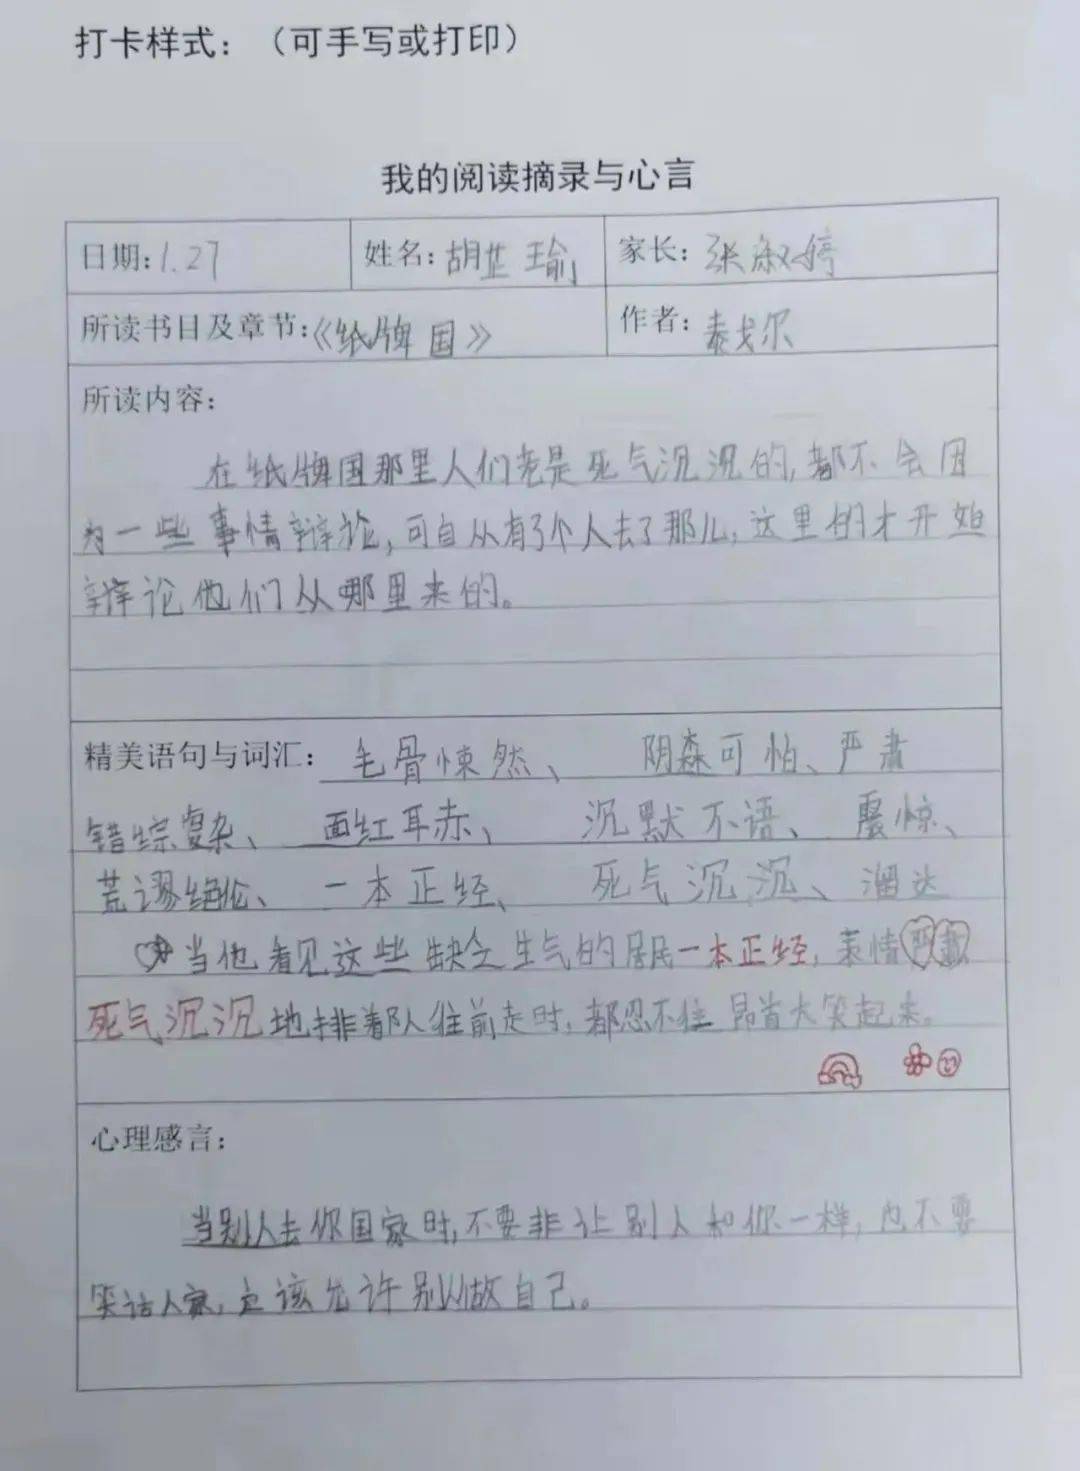 打卡样式：（可手写或打印）
我的阅读摘录与心言
日期：1.27 姓名：胡芷瑜 家长：张淑婷
所读书目及章节：《纸牌国》 作者：泰戈尔
所读内容：
在纸牌国那里人们老是死气沉沉的，都不会因
为一些事情辩论，可自从有3个人去了那儿，这里的才开始
辩论他们从哪里来的。
精美语句与词汇：毛骨悚然、 阴森可怕、严肃
错综复杂、 面红耳赤、 沉默不语、 震惊、
荒谬绝伦、 一本正经、 死气沉沉、溜达
当他看见这些缺乏生气的居民一本正经，表情严肃
死气沉沉地排着队往前走时，都忍不住昂首大笑起来。
心理感言：
当别人去你国家时，不要非让别人和你一样，也不要
笑话人家，应该允许别人做自己。